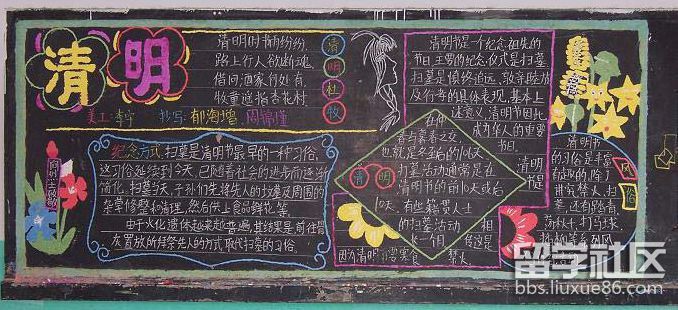 清明
清明时节雨纷纷,
路上行人欲断魂。
借问酒家何处有,
牧童遥指杏花村。
清明杜牧
美工:李宁 抄写:郁海增 周锦隆
纪念方式:扫墓是清明节最早的一种习俗,
这习俗延续到今天,已随着社会的进步而逐渐
简化。扫墓当天,子孙们先将先人的坟墓及周围的
杂草修整和清理,然后供上食品鲜花等。
由于火化遗体越来越普遍,其结果是前往骨
灰置放的拜祭先人的方式取代扫墓的习俗。
清明节是一个纪念祖先的
节日,主要的纪念仪式是扫墓,
扫墓是慎终追远、敦亲睦族
及行孝的具体表现,基本上
述意义,清明节因此
成为华人的重要
节日。
清明
春与暮春之交,
也就是冬至后的106天。
扫墓活动通常是在
清明节的前10天或后
10天。有些籍贯人士
的扫墓活动
长一个月
清明
节是
相
传这是
因为清明
寒食
禁火
清明节
的习俗是丰富
有趣的,除了
讲究禁火、扫
墓,还有踏青、
荡秋千、打马球、
风俗
留学社区
bbs.liuxue86.com